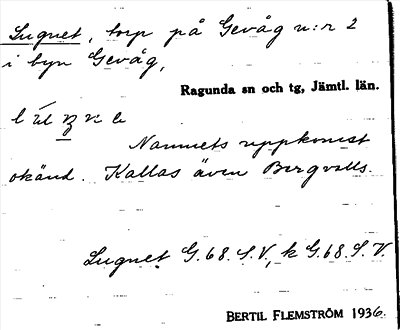 Lugnet, torp på Gevåg n:r 2
i byn Gevåg,
Ragunda sn och tg, Jämtl. län.
Namnets uppkomst
okänd. Kallas även Bergvalls.
Lugnet G.68.S.V, k G.68.S.V.
BERTIL FLEMSTRÖM 1936.